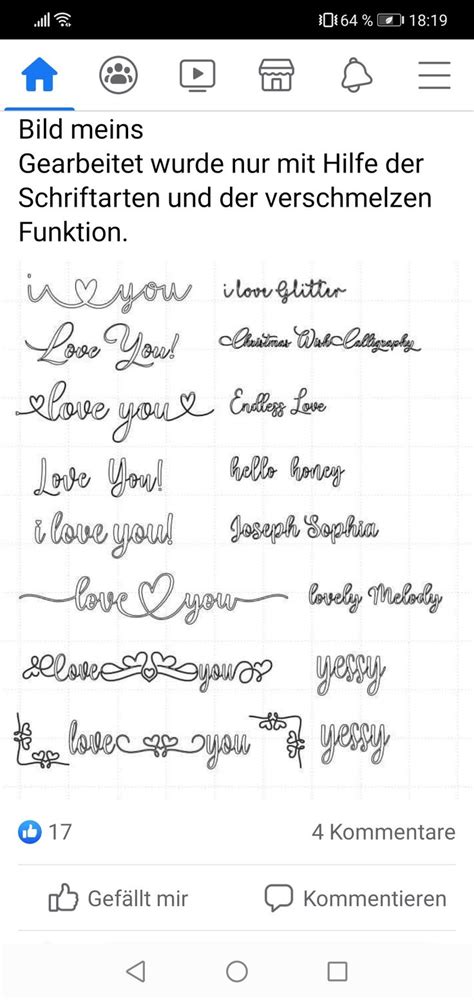 64 % 18:19
Bild meins
Gearbeitet wurde nur mit Hilfe der
Schriftarten und der verschmelzen
Funktion.
i you i love Glitter
Love You! Christmas Wish Calligraphy
love you Endless Love
Love You! hello honey
i love you! Joseph Sophia
love you lovely Melody
love you yessy
love you yessy
17 4 Kommentare
Gefällt mir Kommentieren